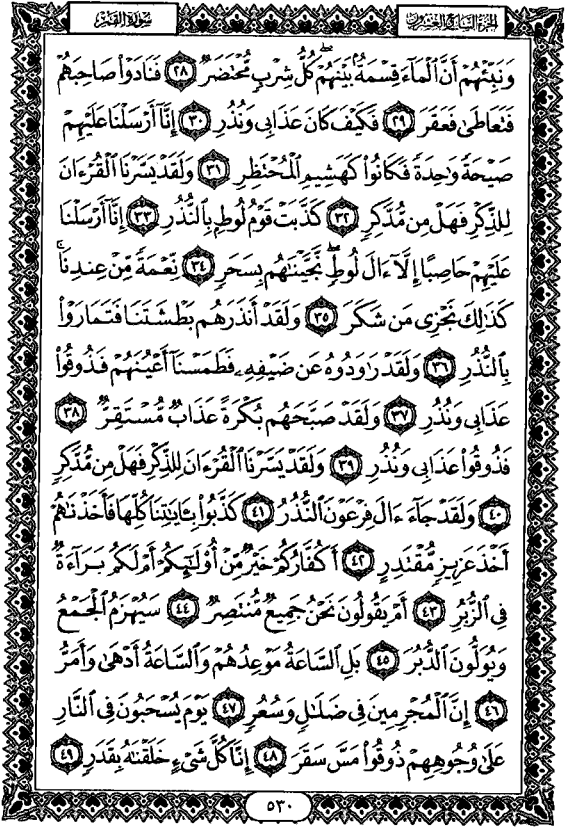 سورة القمر
الجزء السابع والعشرون
وَنَبِّئْهُمْ أَنَّ ٱلْمَآءَ قِسْمَةٌۢ بَيْنَهُمْ ۖ كُلُّ شِرْبٍ مُّحْتَضَرٌ ۝٢٨ فَنَادَوْا۟ صَاحِبَهُمْ
فَتَعَاطَىٰ فَعَقَرَ ۝٢٩ فَكَيْفَ كَانَ عَذَابِى وَنُذُرِ ۝٣٠ إِنَّآ أَرْسَلْنَا عَلَيْهِمْ
صَيْحَةً وَٰحِدَةً فَكَانُوا۟ كَهَشِيمِ ٱلْمُحْتَظِرِ ۝٣١ وَلَقَدْ يَسَّرْنَا ٱلْقُرْءَانَ
لِلذِّكْرِ فَهَلْ مِن مُّدَّكِرٍ ۝٣٢ كَذَّبَتْ قَوْمُ لُوطٍۭ بِٱلنُّذُرِ ۝٣٣ إِنَّآ أَرْسَلْنَا
عَلَيْهِمْ حَاصِبًا إِلَّآ ءَالَ لُوطٍ ۖ نَّجَّيْنَٰهُم بِسَحَرٍ ۝٣٤ نِّعْمَةً مِّنْ عِندِنَا ۚ
كَذَٰلِكَ نَجْزِى مَن شَكَرَ ۝٣٥ وَلَقَدْ أَنذَرَهُم بَطْشَتَنَا فَتَمَارَوْا۟
بِٱلنُّذُرِ ۝٣٦ وَلَقَدْ رَٰوَدُوهُ عَن ضَيْفِهِۦ فَطَمَسْنَآ أَعْيُنَهُمْ فَذُوقُوا۟
عَذَابِى وَنُذُرِ ۝٣٧ وَلَقَدْ صَبَّحَهُم بُكْرَةً عَذَابٌ مُّسْتَقِرٌّ ۝٣٨
فَذُوقُوا۟ عَذَابِى وَنُذُرِ ۝٣٩ وَلَقَدْ يَسَّرْنَا ٱلْقُرْءَانَ لِلذِّكْرِ فَهَلْ مِن مُّدَّكِرٍ
۝٤٠ وَلَقَدْ جَآءَ ءَالَ فِرْعَوْنَ ٱلنُّذُرُ ۝٤١ كَذَّبُوا۟ بِـَٔايَٰتِنَا كُلِّهَا فَأَخَذْنَٰهُمْ
أَخْذَ عَزِيزٍ مُّقْتَدِرٍ ۝٤٢ أَكُفَّارُكُمْ خَيْرٌ مِّنْ أُو۟لَٰٓئِكُمْ أَمْ لَكُم بَرَآءَةٌ
فِى ٱلزُّبُرِ ۝٤٣ أَمْ يَقُولُونَ نَحْنُ جَمِيعٌ مُّنتَصِرٌ ۝٤٤ سَيُهْزَمُ ٱلْجَمْعُ
وَيُوَلُّونَ ٱلدُّبُرَ ۝٤٥ بَلِ ٱلسَّاعَةُ مَوْعِدُهُمْ وَٱلسَّاعَةُ أَدْهَىٰ وَأَمَرُّ
۝٤٦ إِنَّ ٱلْمُجْرِمِينَ فِى ضَلَٰلٍ وَسُعُرٍ ۝٤٧ يَوْمَ يُسْحَبُونَ فِى ٱلنَّارِ
عَلَىٰ وُجُوهِهِمْ ذُوقُوا۟ مَسَّ سَقَرَ ۝٤٨ إِنَّا كُلَّ شَىْءٍ خَلَقْنَٰهُ بِقَدَرٍ ۝٤٩
٥٣٠